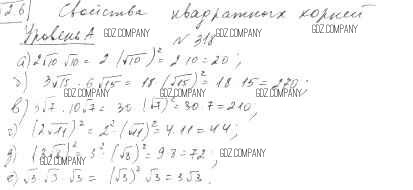 § 2.6 Свойства квадратных корней
Уровень А № 318
а) 2√10 · √10 = 2 · (√10)² = 2 · 10 = 20;
3√15 · 6√15 = 18 (√15)² = 18 · 15 = 270;
в) 3√7 · 10√7 = 30 · (√7)² = 30 · 7 = 210;
г) (2√11)² = 2² · (√11)² = 4 · 11 = 44;
д) (3√8)² = 3² · (√8)² = 9 · 8 = 72;
е) √3 · √3 · √3 = (√3)² · √3 = 3√3.
GDZ.COMPANY
GDZ.COMPANY
GDZ.COMPANY
GDZ.COMPANY
GDZ.COMPANY
GDZ.COMPANY
GDZ.COMPANY
GDZ.COMPANY
GDZ.COMPANY